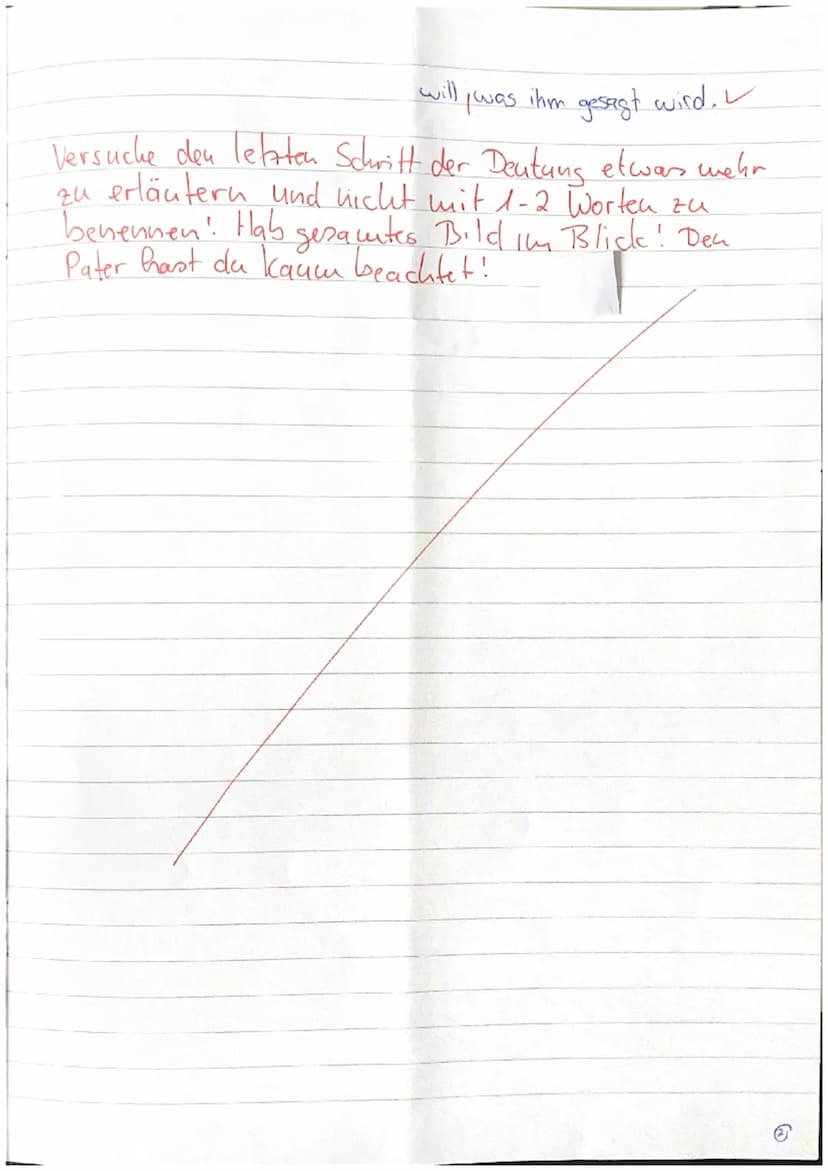 will, was ihm gesagt wird. ✓
Versuche den letzten Schritt der Deutung etwas mehr
zu erläutern und nicht mit 1-2 Worten zu
benennen! Hab gesamtes Bild im Blick! Den
Pater hast du kaum beachtet!
2